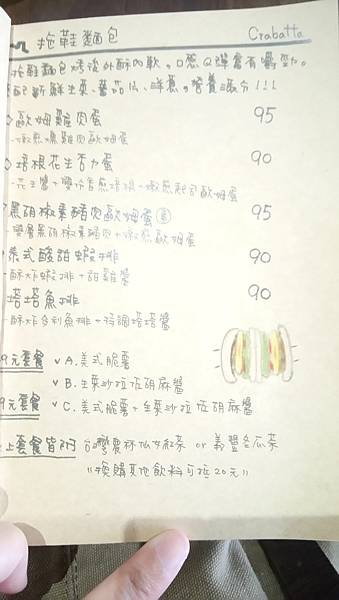 拖鞋麵包 Crabatta
拖鞋麵包烤後外酥內軟，口感Q彈富有嚼勁。
配新鮮生菜、蕃茄片、洋蔥，營養滿分!!!
歐姆雞肉蛋 95
嫩煎雞肉歐姆蛋
培根花生活力蛋 90
花生醬+雙份香煎培根+嫩煎起司歐姆蛋
黑胡椒素豬肉歐姆蛋 素 95
雙層黑胡椒素豬肉+嫩煎歐姆蛋
泰式酸甜蝦排 90
酥炸蝦排+甜雞醬
塔塔魚排 90
酥炸多利魚排+特調塔塔醬
9元套餐 v A.美式脆薯
v B.生菜沙拉佐胡麻醬
9元套餐 v C.美式脆薯+生菜沙拉佐胡麻醬
上套餐皆附 台灣農林仙女紅茶 or 義豐冬瓜茶
"換購其他飲料可抵20元"